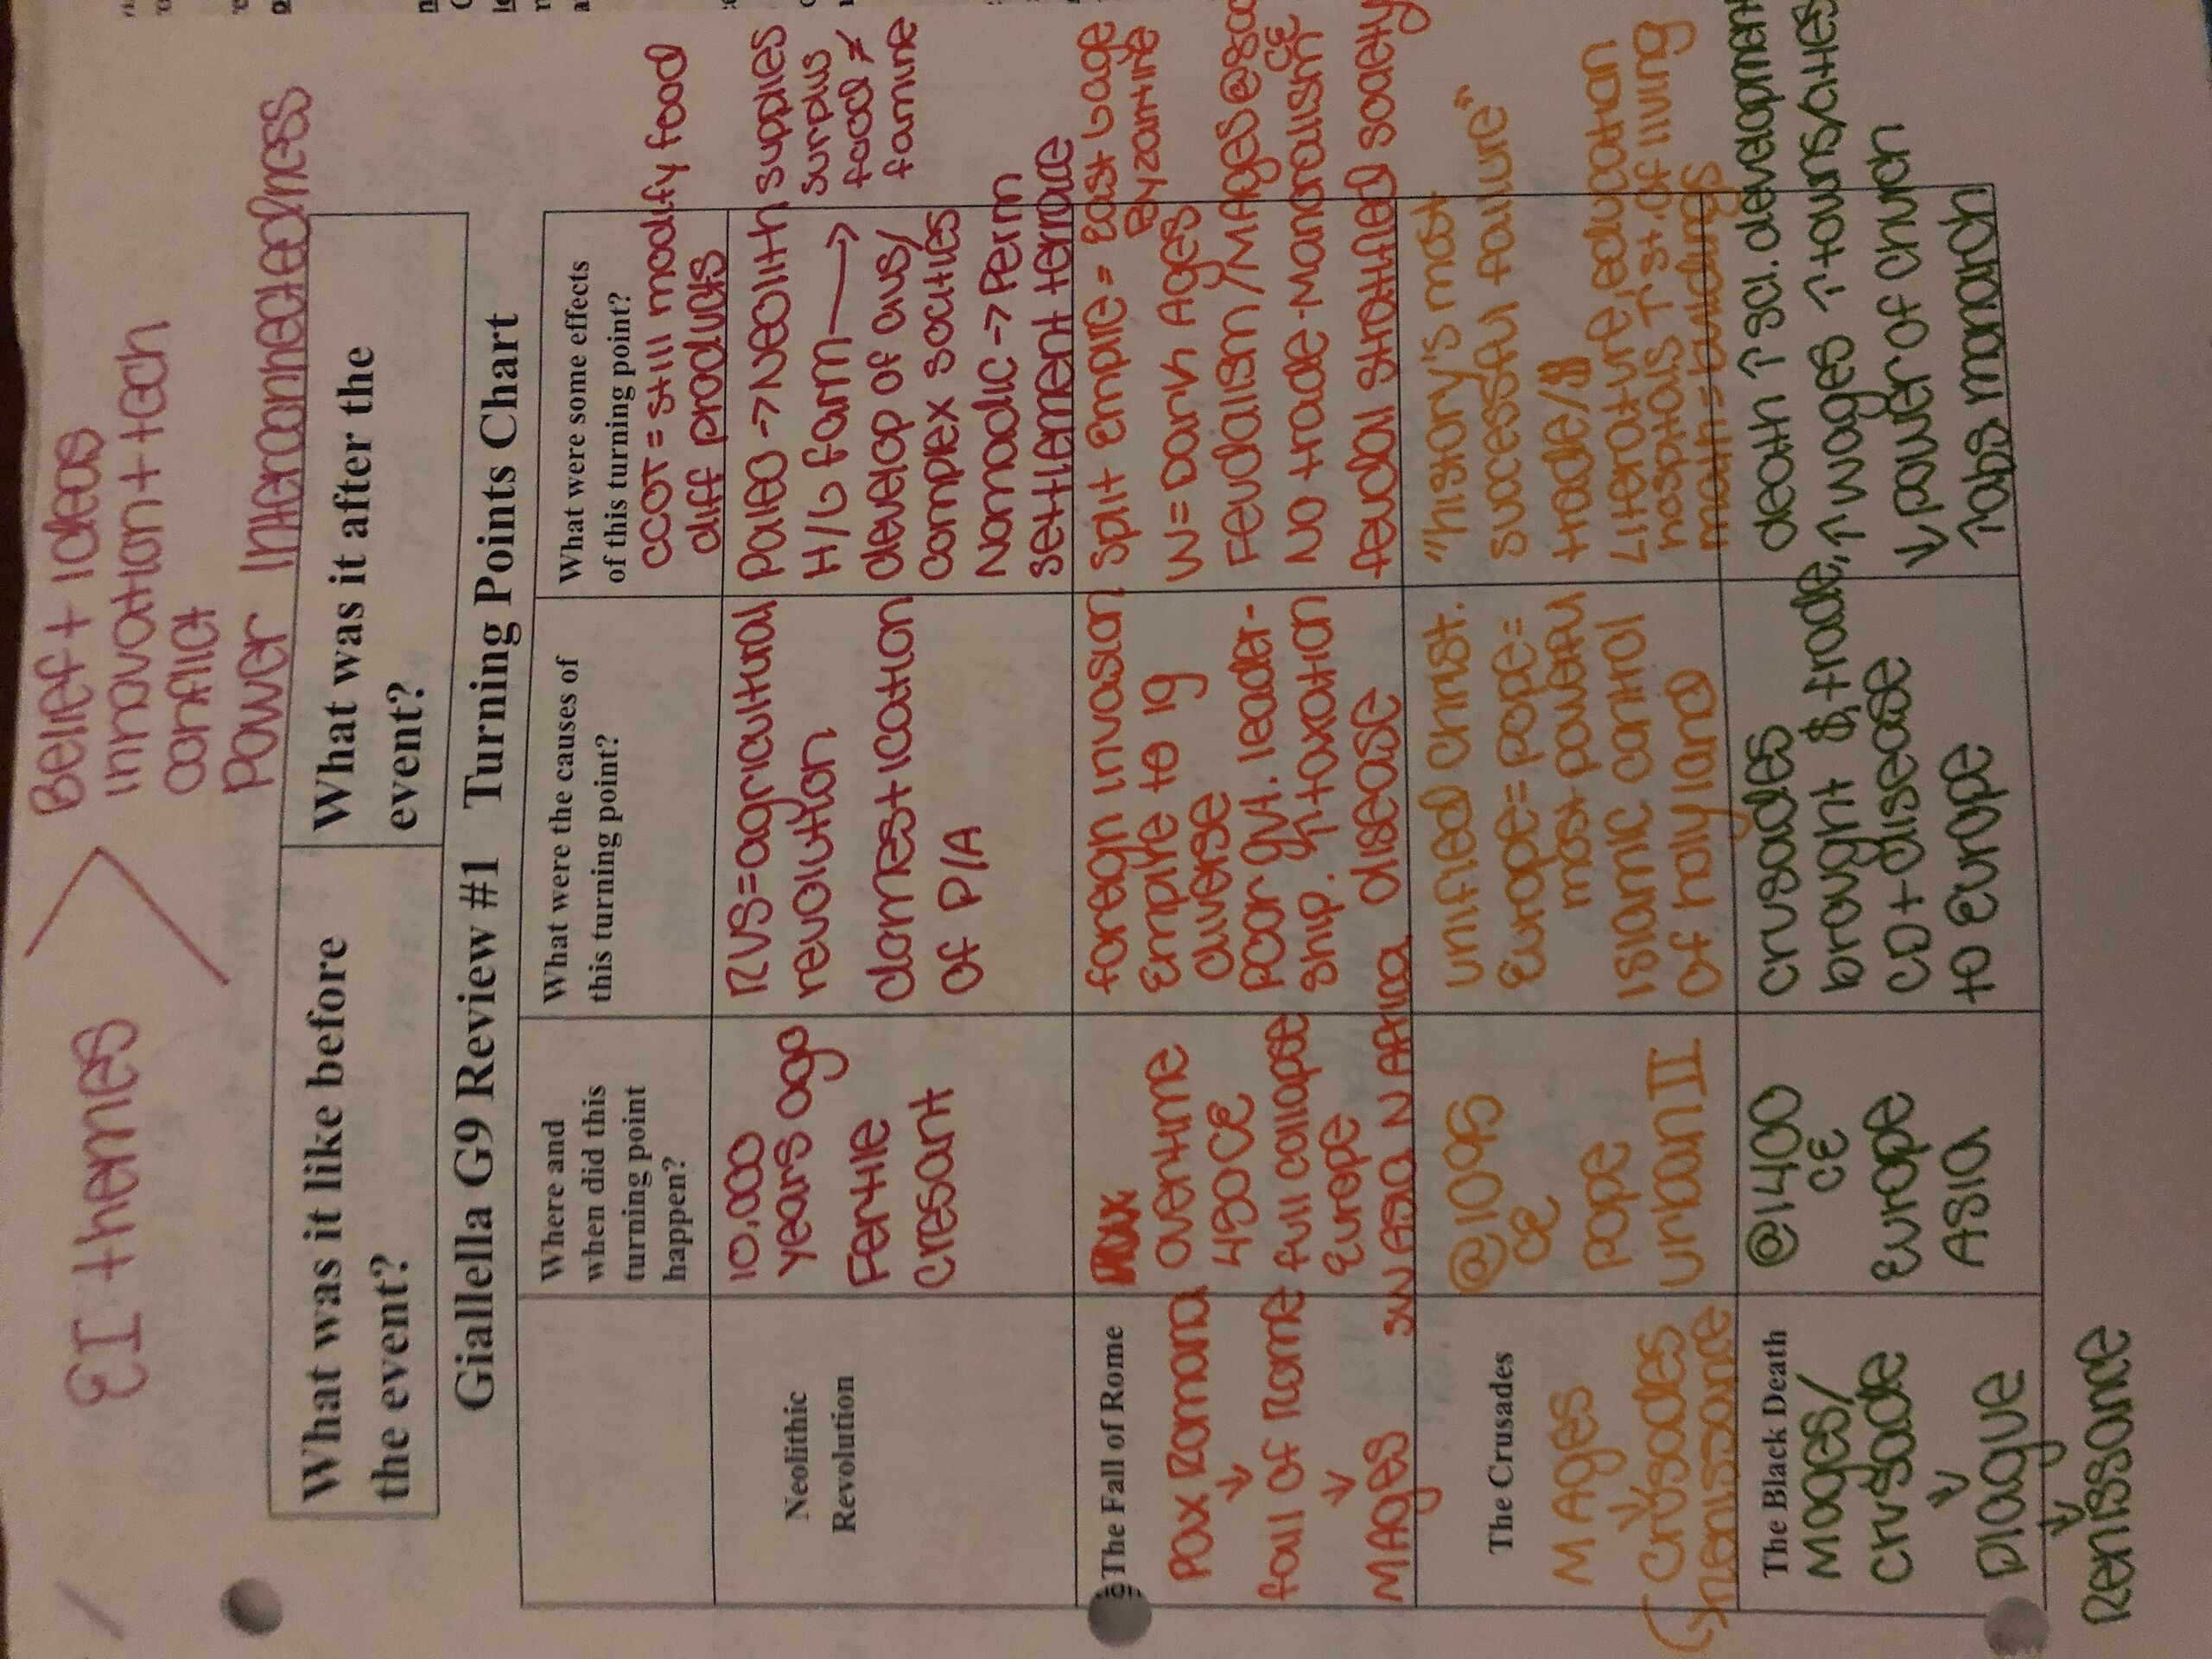 EI themes
Belief + ideas
innovation + tech
conflict
Power Interconnectedness
What was it like before
the event?
What was it after the
event?
Giallella G9 Review #1 Turning Points Chart
Where and
when did this
turning point
happen?
What were the causes of
this turning point?
What were some effects
of this turning point?
CCOT = still modify food
diff products
Neolithic
Revolution
10,000
years ago
Fertle
cresant
RVS = agricultural
revolution
domestication
of P/A
Paleo → Neolith
H/G farm →
develop of avs/
complex socities
Nomadic → Perm
settlement terrace
supplies
surplus
food ≠
famine
The Fall of Rome
Pax Romana
↓
fall of Rome
↓
MAges
overtime
450CE
full collapse
Europe
SW Asia N Africa
foregn invasion
Empire to lg
diverse
poor gvt. leader-
ship. ↑ taxation
disease
split empire = east Lage
Byzantine
W = Dark Ages
Feudalism/MAges @ 800
CE
No trade - Manoralism
feudal stratified society
The Crusades
MAges
↓
Crusades
Renissance
@1095
CE
Pope
Urban II
unified Christ.
Europe = pope =
most powerful
Islamic control
of holly land
"history's most
successful failure"
trade/$
Literature, education
hospitals ↑ st. of living
math = buildings
The Black Death
MAges/
crusade
↓
Plague
↓
Renissance
@1400
CE
Europe
Asia
crusades
brought $, trade,
CD + disease
to Europe
death ↑ sci. development
↑ wages ↑ towns/cities
↓ power of church
↑ abs monarch